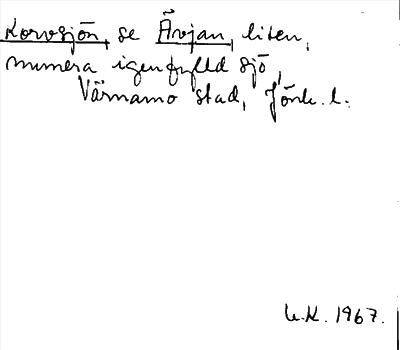 Korvsjön, se Årojan, liten,
numera igenfylld sjö,
Värnamo stad, Jönk. l.
U.K. 1967.